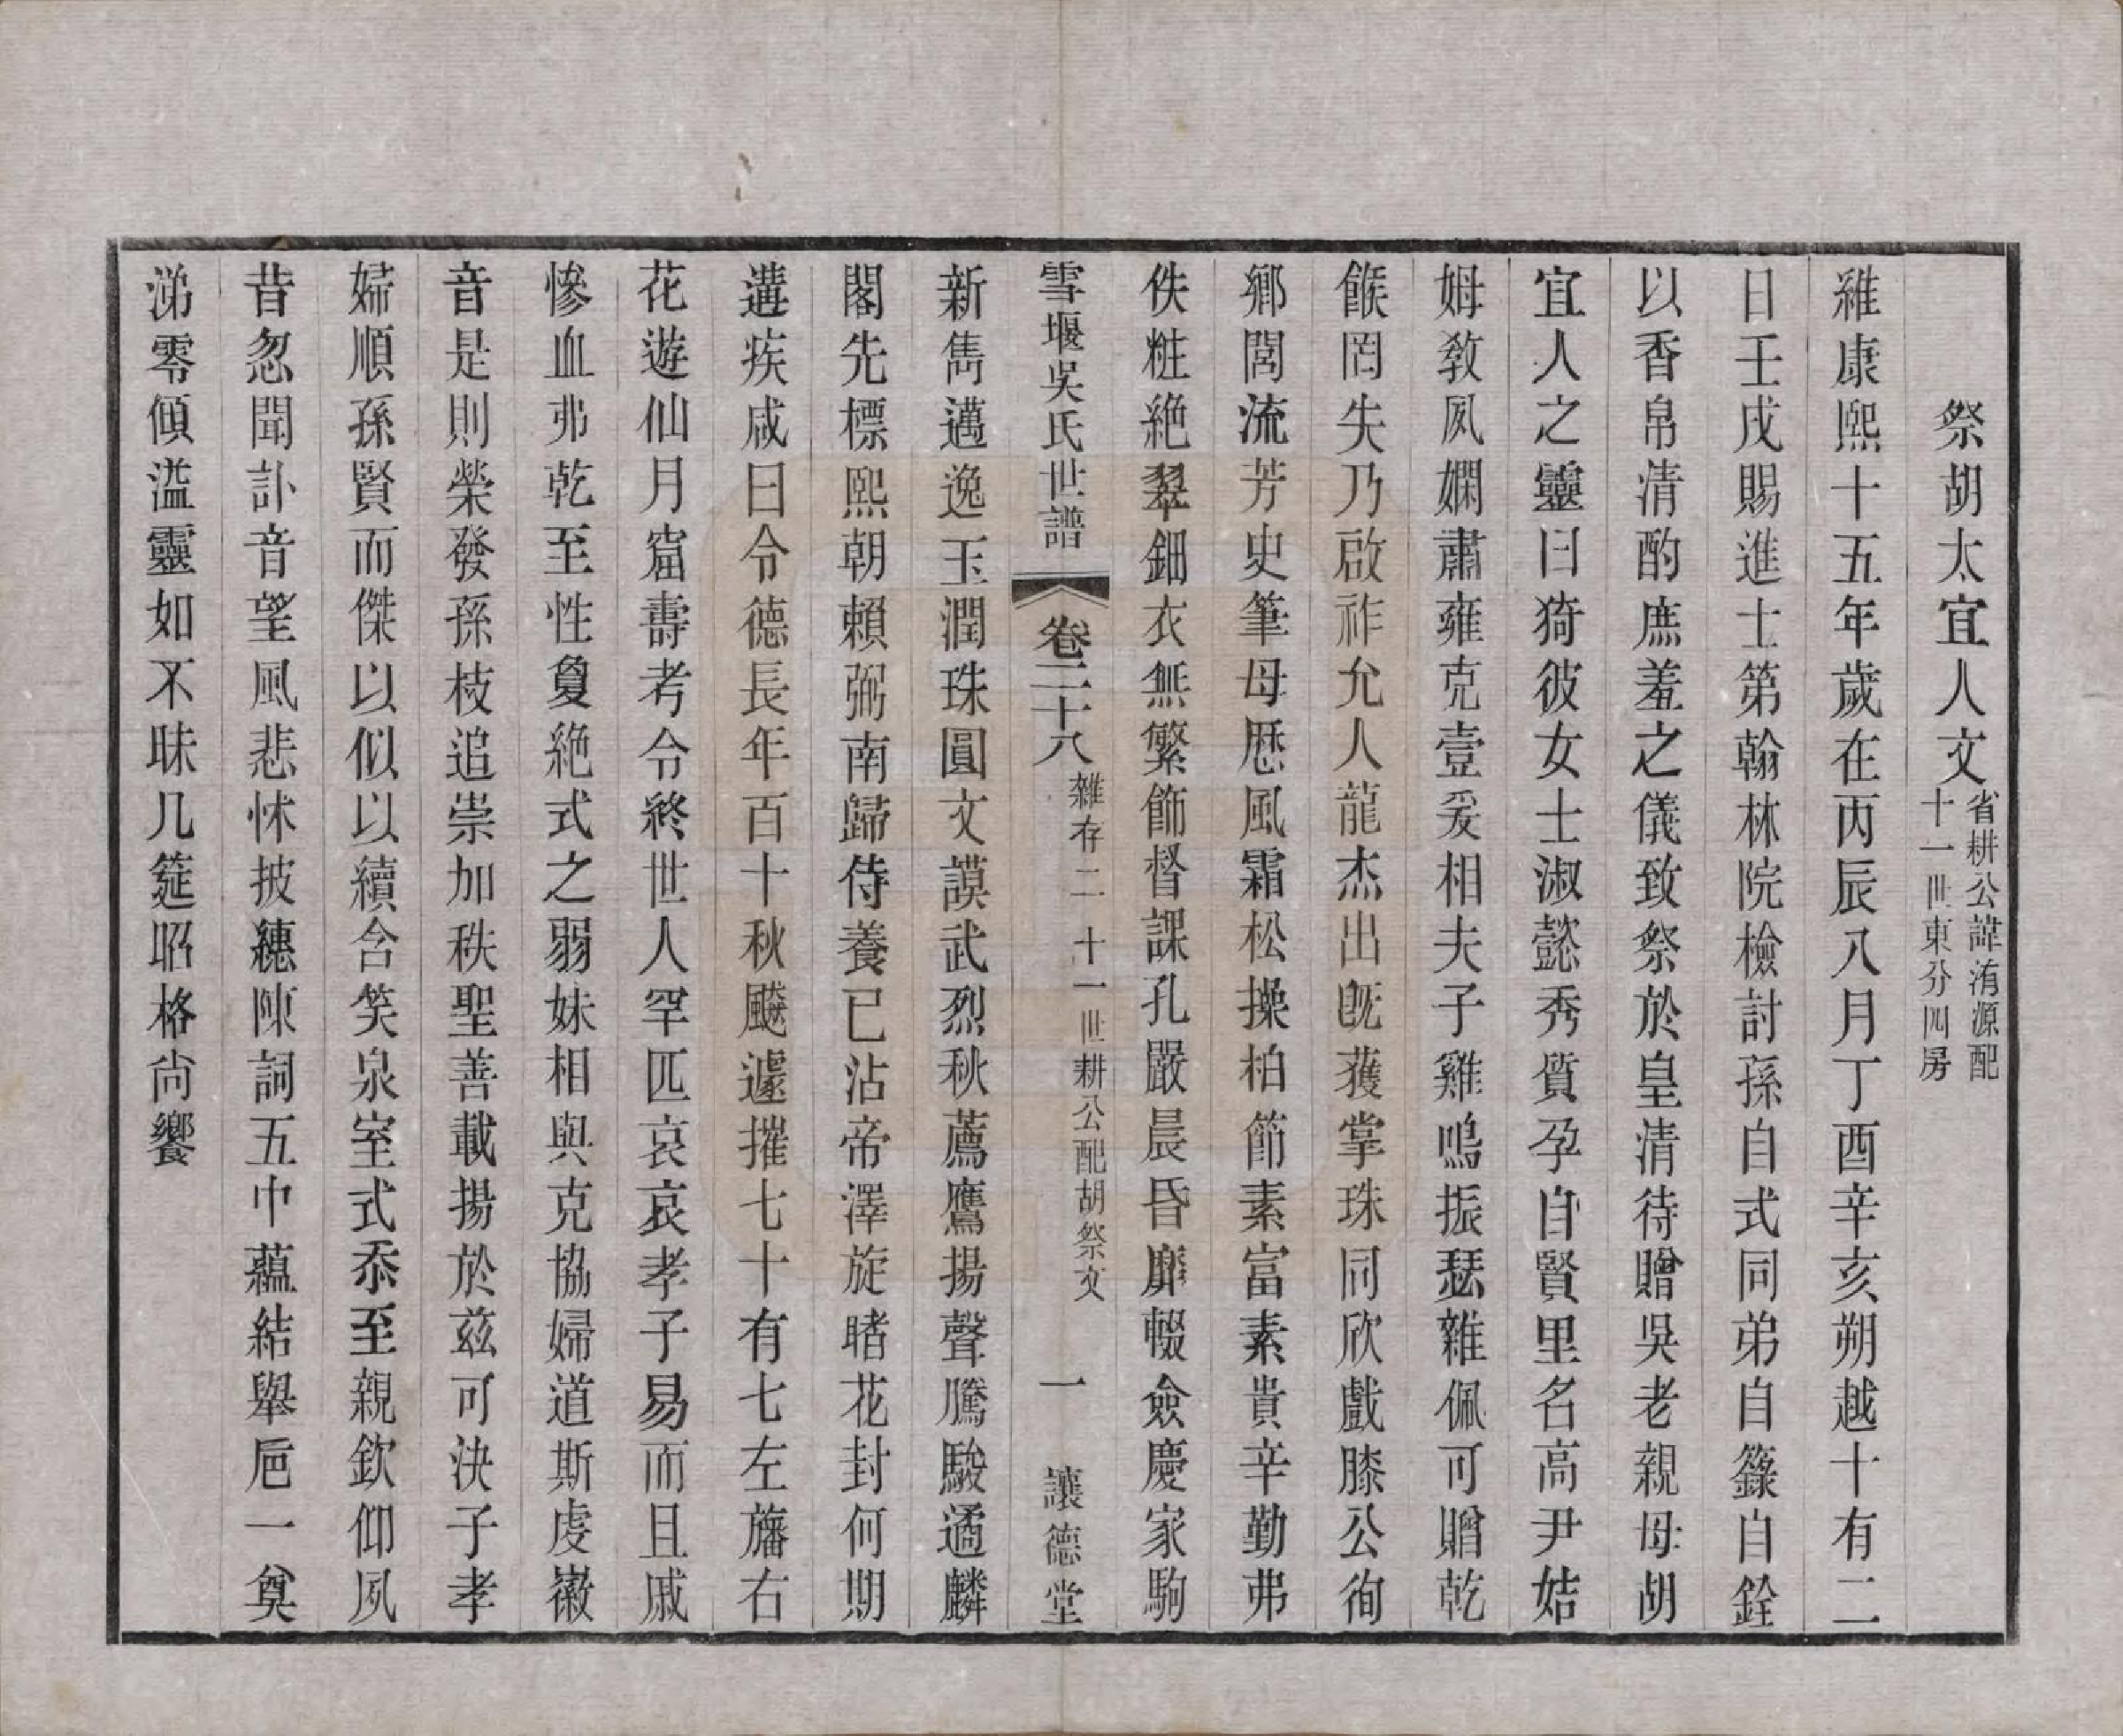 祭胡太宜人文省耕公諱洧源配十一世東分四房
維康熙十五年歲在丙辰八月丁酉辛亥朔越十有二
日壬戌賜進士第翰林院檢討孫自式同弟自籙自銓
以香帛清酌庶羞之儀致祭於皇清待贈吳老親母胡
宜人之靈曰猗彼女士淑懿秀質孕自賢里名高尹姞
姆敎夙嫻肅雍克壹爰相夫子雞鳴振瑟雜佩可贈乾
餱罔失乃啟祚允人龍杰出旣獲掌珠同欣戲膝公徇
鄉閭流芳史筆母歷風霜松操柏節素富素貴辛勤弗
佚粧絶翠鈿衣無繁飾督課孔嚴晨昏靡輟僉慶家駒
雪堰吳氏世譜 卷三十八 雜存二 十一世耕公配胡祭文 一 讓德堂
新雋邁逸玉潤珠圓文謨武烈秋薦鷹揚聲騰駿遹麟
閣先標熙朝賴弼南歸侍養已沾帝澤旋睹花封何期
遘疾咸曰令德長年百十秋飈遽摧七十有七左旛右
花遊仙月窟壽考令終世人罕匹哀哀孝子易而且戚
慘血弗乾至性夐絶式之弱妹相與克協婦道斯虔徽
音是則榮發孫枝追崇加秩聖善載揚於茲可決子孝
婦順孫賢而傑以似以續含笑泉室式忝至親欽仰夙
昔忽聞訃音望風悲怵披繐陳詞五中蘊結舉卮一奠
涕零傾溢靈如不昧几筵昭格尙饗